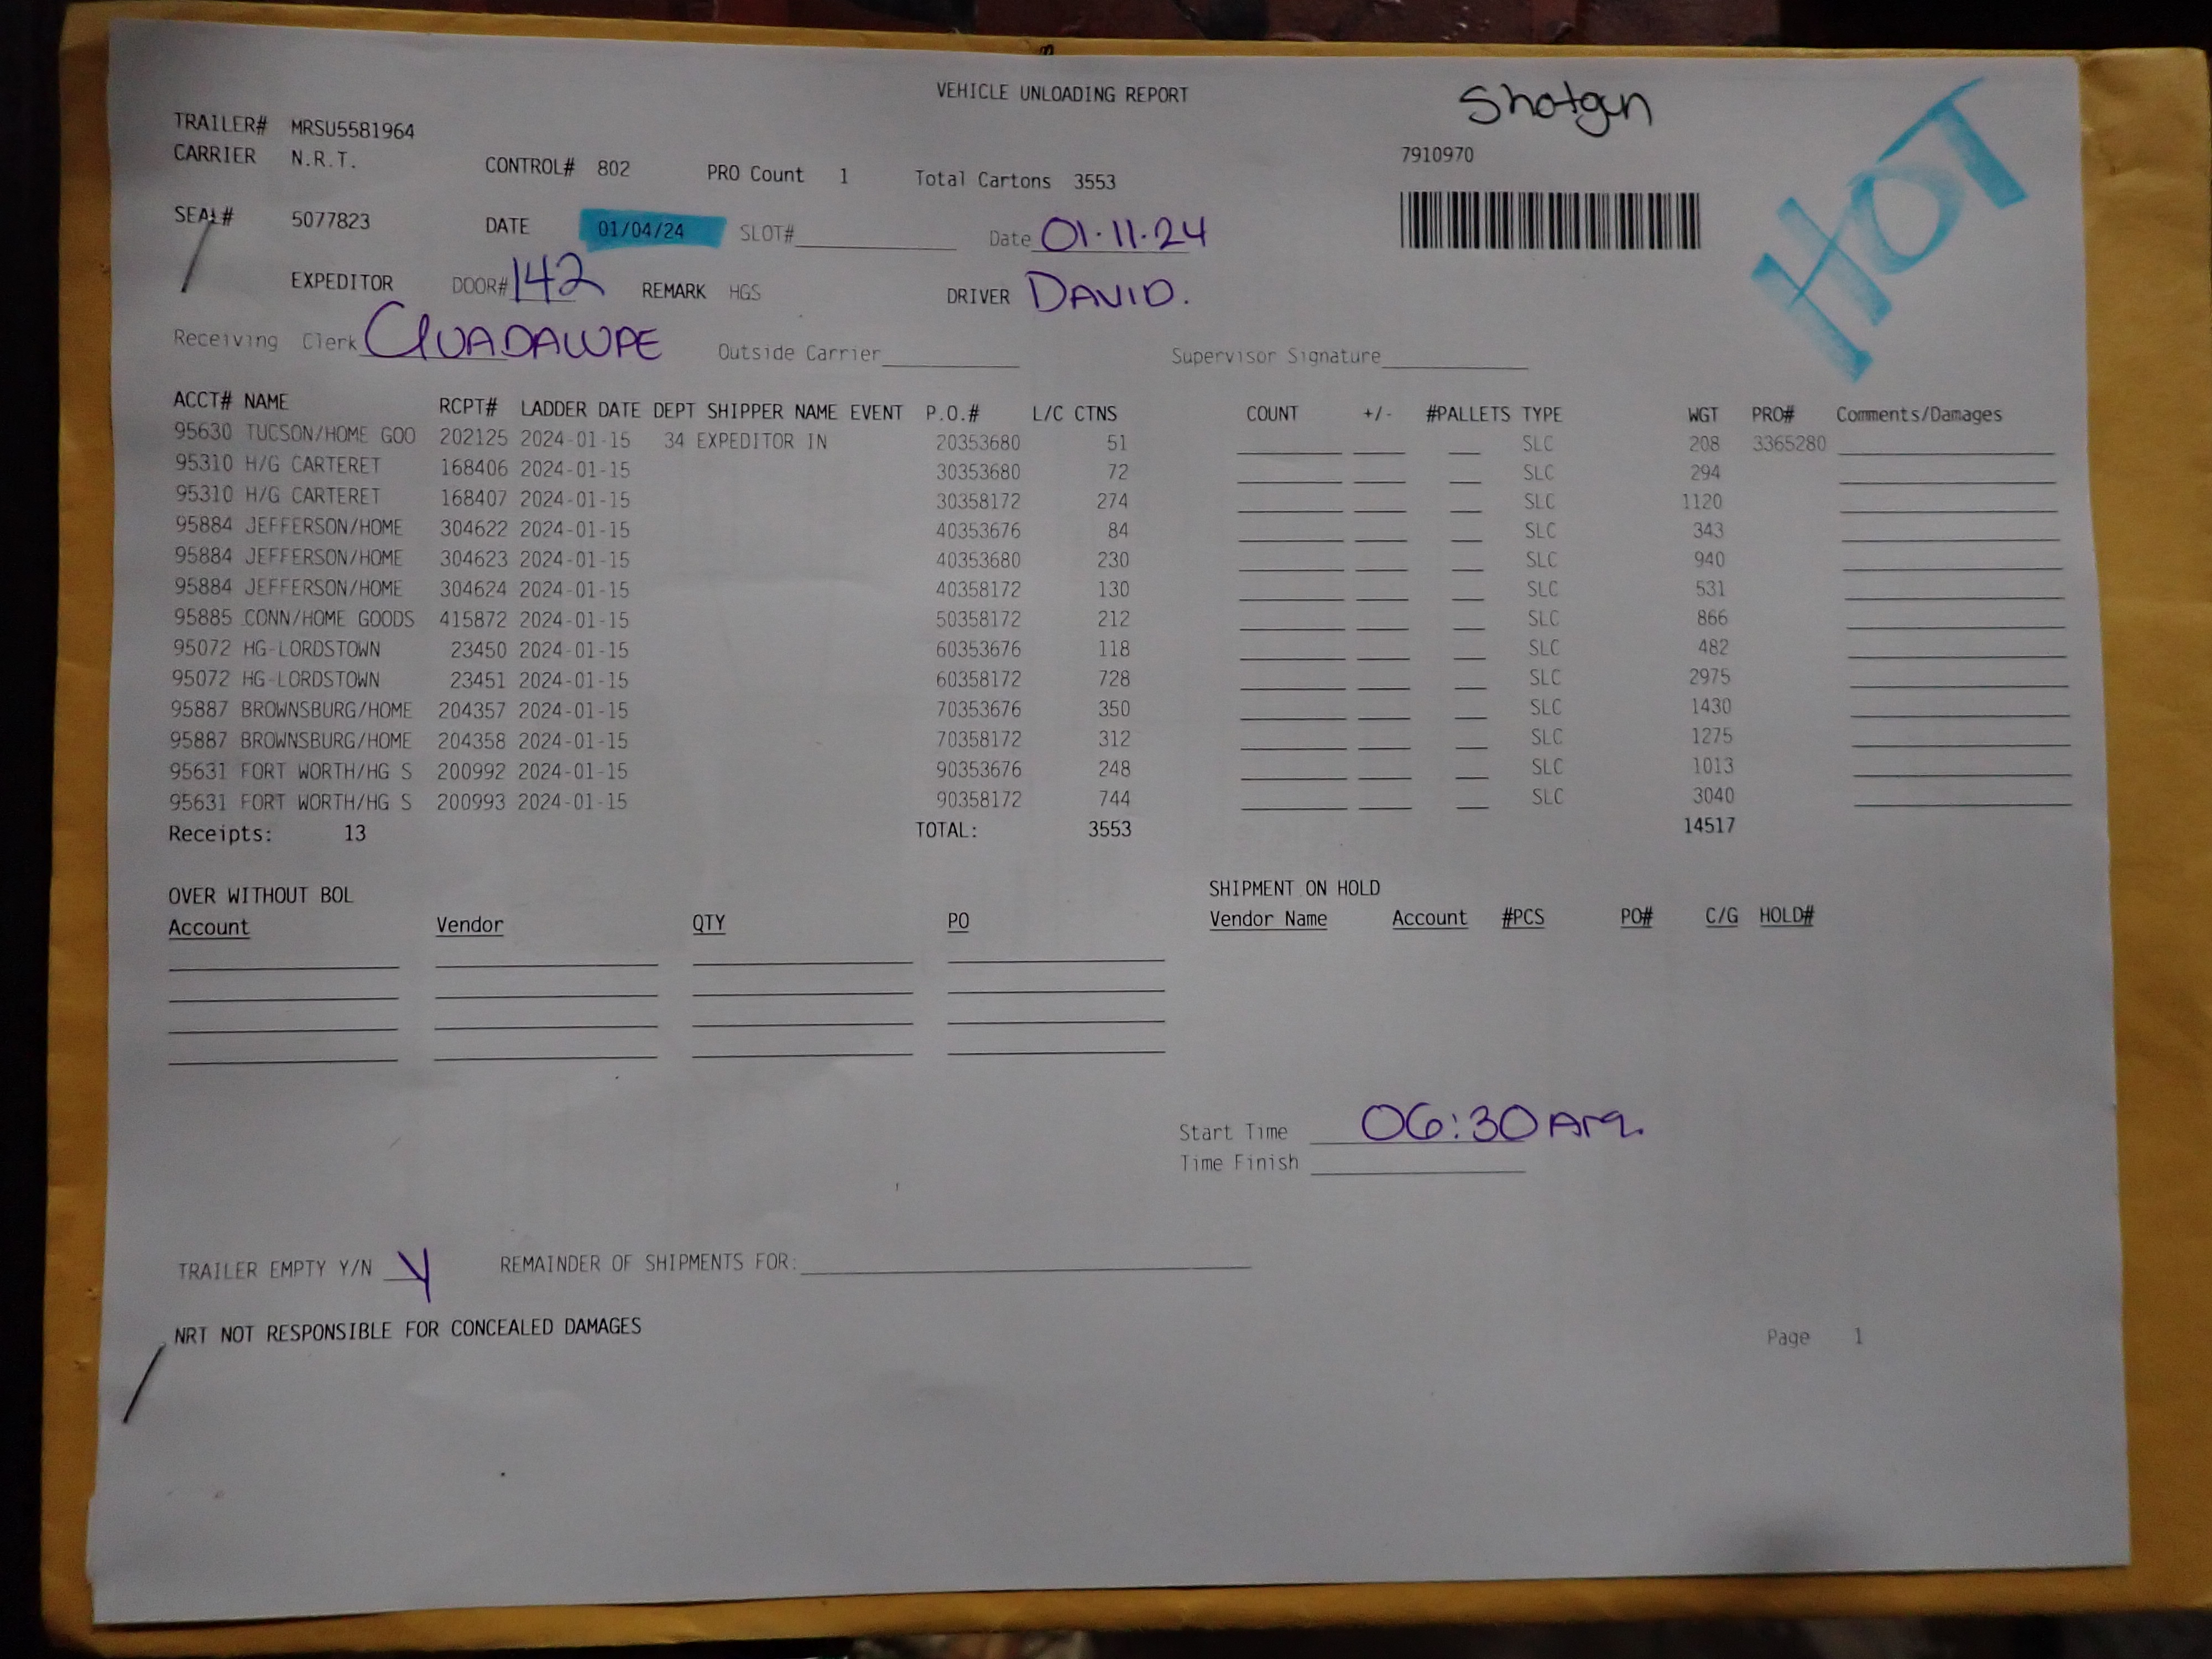 VEHICLE UNLOADING REPORT
Shotgun
HOT
TRAILER# MRSU5581964
CARRIER N.R.T. CONTROL# 802 PRO Count 1 Total Cartons 3553
7910970
SEAL# 5077823 DATE 01/04/24 SLOT# Date 01.11.24
EXPEDITOR DOOR# 142 REMARK HGS DRIVER DAVID.
Receiving Clerk GUADALUPE Outside Carrier Supervisor Signature
ACCT# NAME RCPT# LADDER DATE DEPT SHIPPER NAME EVENT P.O.# L/C CTNS COUNT +/- #PALLETS TYPE WGT PRO# Comments/Damages
95630 TUCSON/HOME GOO 202125 2024-01-15 34 EXPEDITOR IN 20353680 51 SLC 208 3365280
95310 H/G CARTERET 168406 2024-01-15 30353680 72 SLC 294
95310 H/G CARTERET 168407 2024-01-15 30358172 274 SLC 1120
95884 JEFFERSON/HOME 304622 2024-01-15 40353676 84 SLC 343
95884 JEFFERSON/HOME 304623 2024-01-15 40353680 230 SLC 940
95884 JEFFERSON/HOME 304624 2024-01-15 40358172 130 SLC 531
95885 CONN/HOME GOODS 415872 2024-01-15 50358172 212 SLC 866
95072 HG-LORDSTOWN 23450 2024-01-15 60353676 118 SLC 482
95072 HG-LORDSTOWN 23451 2024-01-15 60358172 728 SLC 2975
95887 BROWNSBURG/HOME 204357 2024-01-15 70353676 350 SLC 1430
95887 BROWNSBURG/HOME 204358 2024-01-15 70358172 312 SLC 1275
95631 FORT WORTH/HG S 200992 2024-01-15 90353676 248 SLC 1013
95631 FORT WORTH/HG S 200993 2024-01-15 90358172 744 SLC 3040
Receipts: 13 TOTAL: 3553 14517
OVER WITHOUT BOL SHIPMENT ON HOLD
Account Vendor QTY PO Vendor Name Account #PCS PO# C/G HOLD#
Start Time 06:30 AM.
Time Finish
TRAILER EMPTY Y/N Y REMAINDER OF SHIPMENTS FOR:
NRT NOT RESPONSIBLE FOR CONCEALED DAMAGES
Page 1